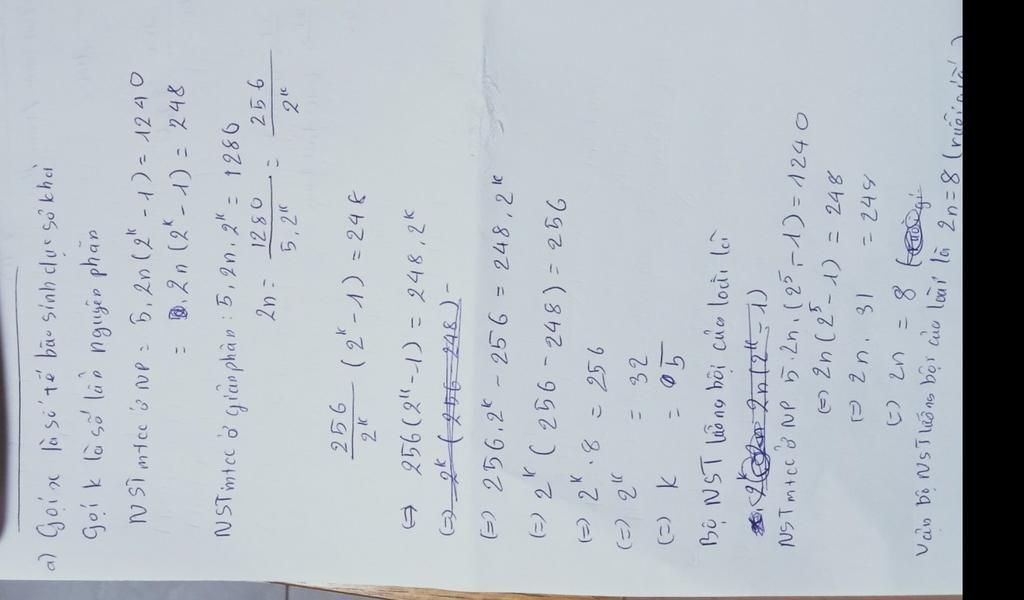 a) Gọi x là số tế bào sinh dục sơ khai
Gọi k là số lần nguyên phân
NST mtcc ở NP = 5.2n(2^k - 1) = 1240
= 2n(2^k - 1) = 248
NST mtcc ở giảm phân : 5.2n.2^k = 1280
2n = 1280/5.2^k = 256/2^k
256/2^k (2^k - 1) = 248
(=) 256(2^k - 1) = 248.2^k
(=) 2^k (256 - 248) =
(=) 256.2^k - 256 = 248.2^k
(=) 2^k (256 - 248) = 256
(=) 2^k . 8 = 256
(=) 2^k = 32
(=) k = 5
Bộ NST lưỡng bội của loài là
2n(2^k - 1)
NST mtcc ở NP 5.2n.(2^5 - 1) = 1240
(=) 2n(2^5 - 1) = 248
(=) 2n . 31 = 248
(=) 2n = 8
Vậy bộ NST lưỡng bội của loài là 2n = 8 (ruồi giấm)